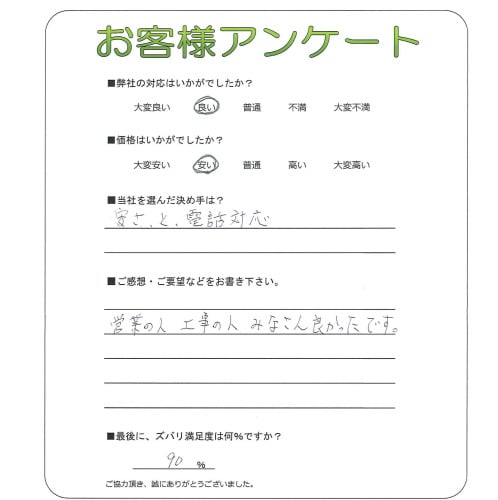 お客様アンケート
■弊社の対応はいかがでしたか?
大変良い 良い 普通 不満 大変不満
■価格はいかがでしたか?
大変安い 安い 普通 高い 大変高い
■当社を選んだ決め手は?
安さ、と、電話対応
■ご感想・ご要望などをお書き下さい。
営業の人 工事の人 みなさん良かったです。
■最後に、ズバリ満足度は何%ですか?
90 %
ご協力頂き、誠にありがとうございました。